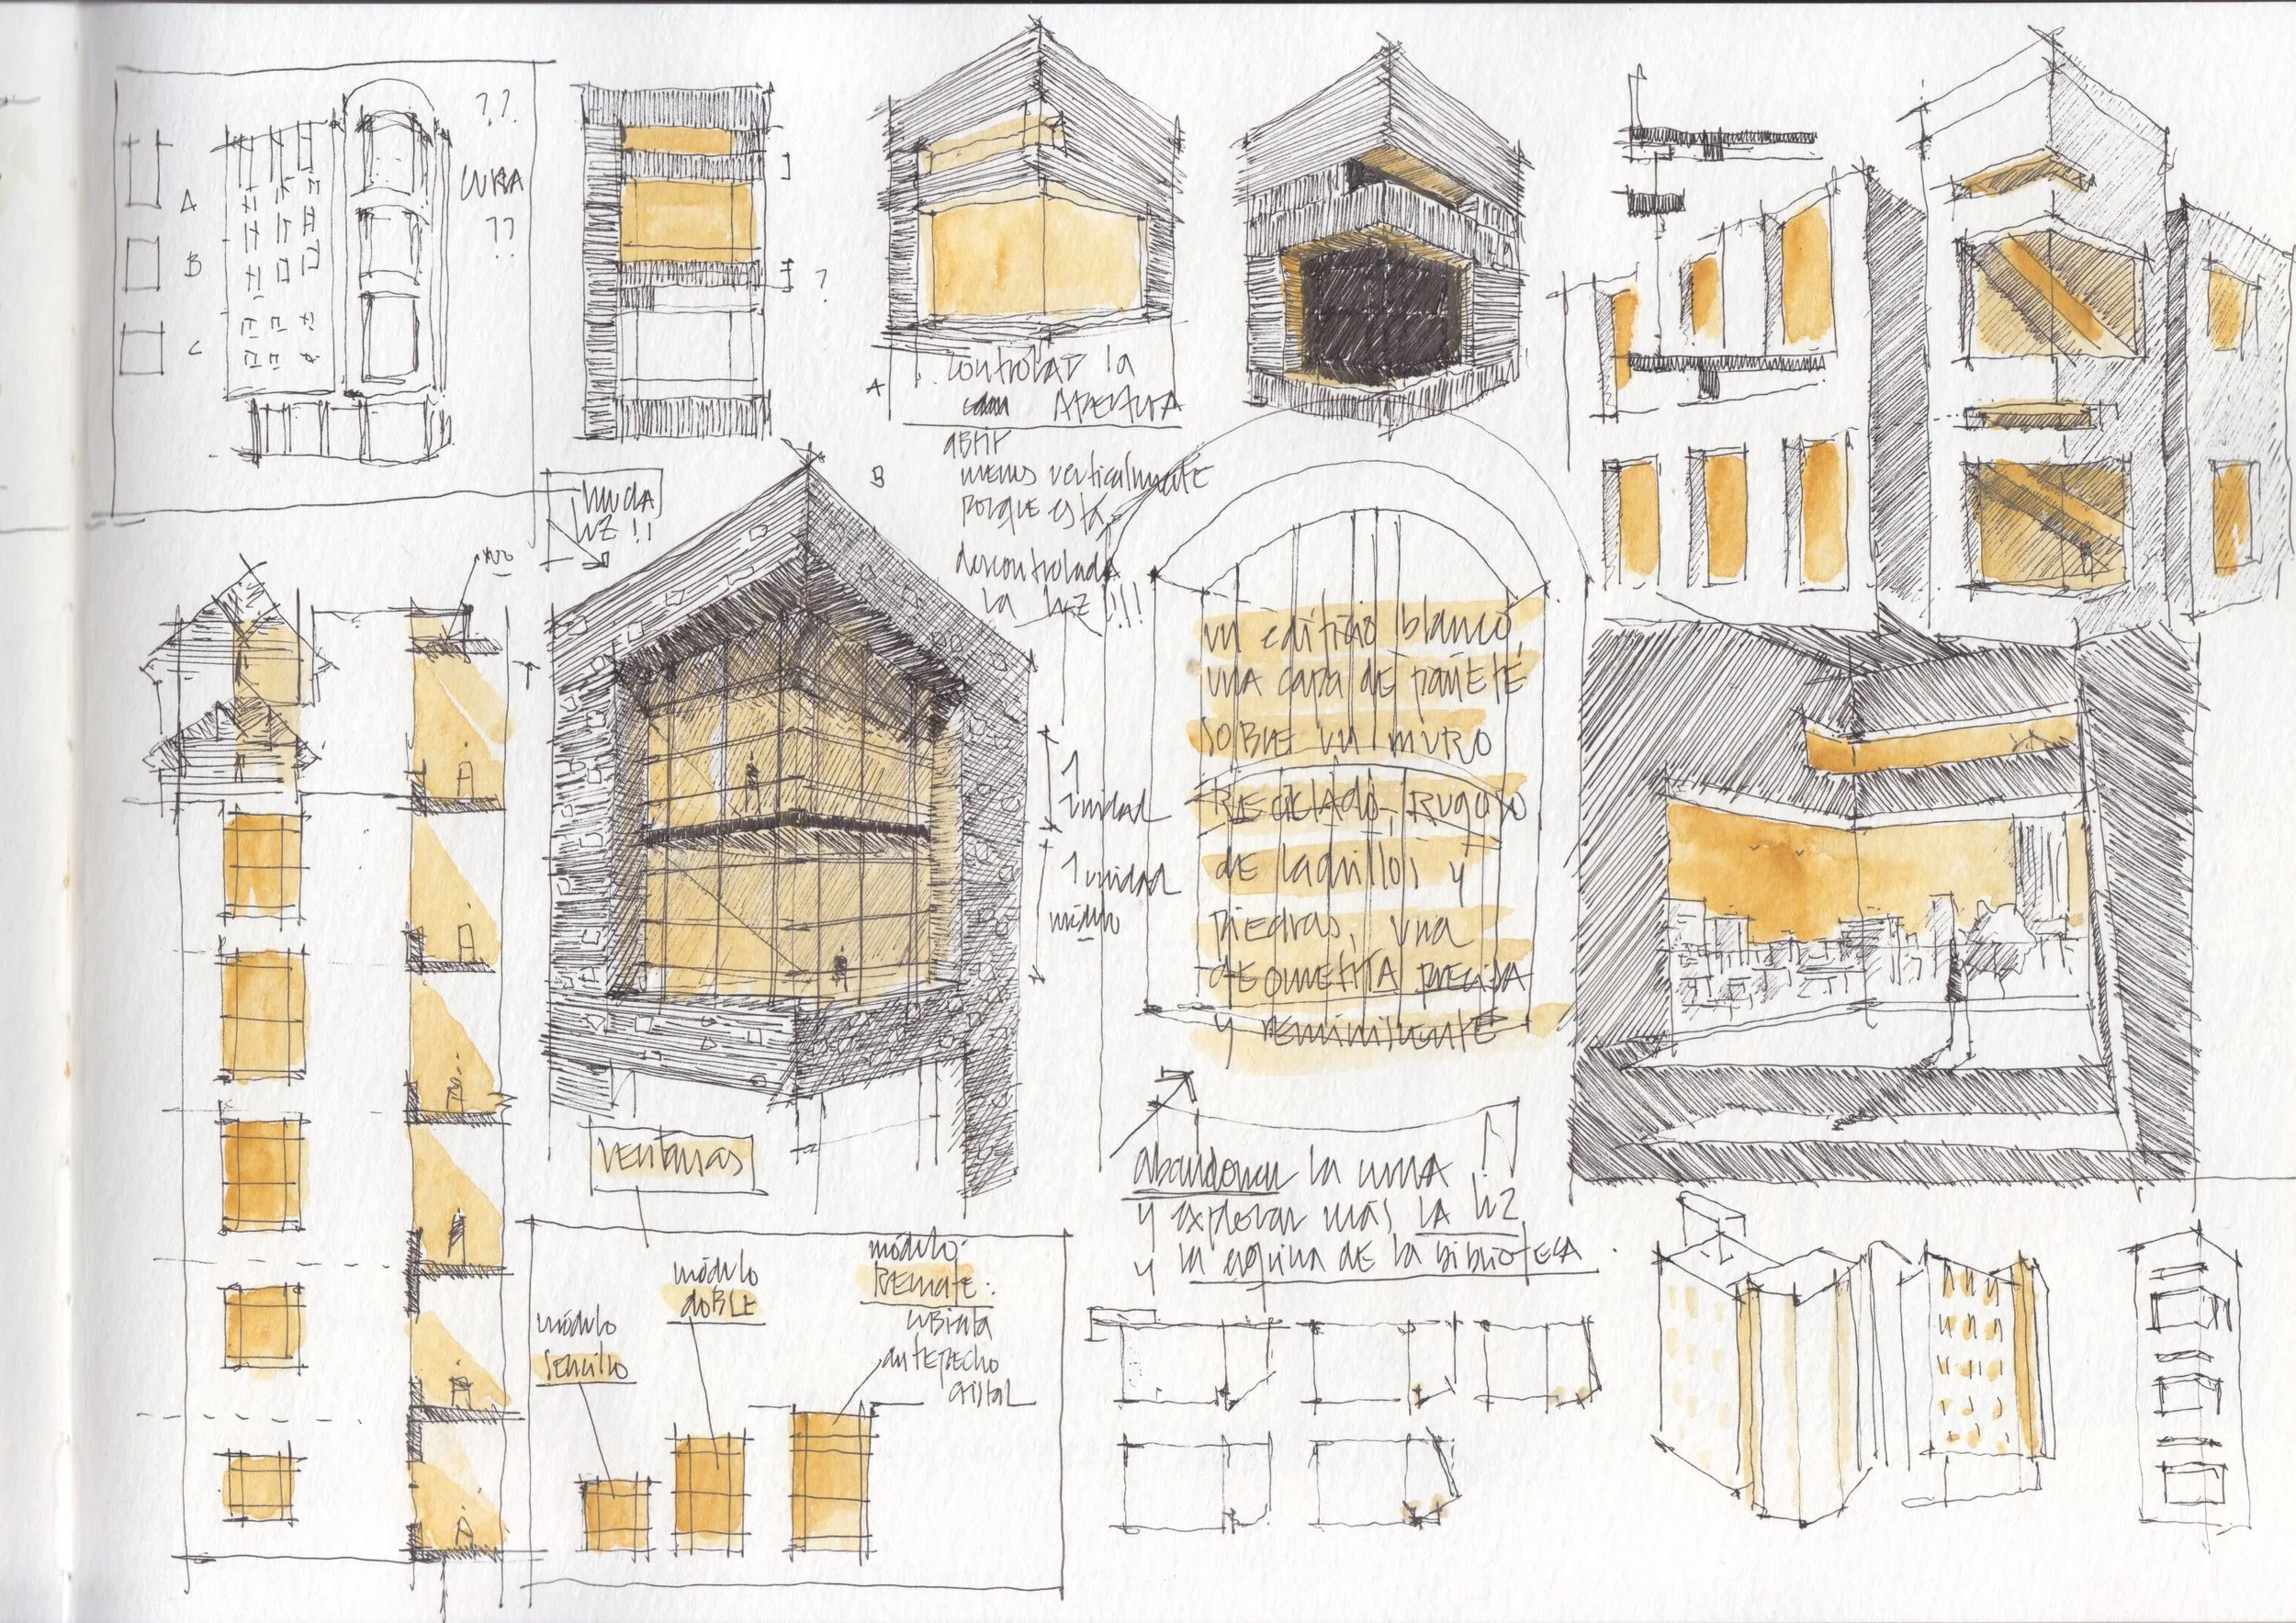 ??
CURVA
??
A
B
C
?
A
controlar la
APERTURA
B
abrir
menos verticalmente
porque está
descontrolada
la luz !!!
mucha
luz !!
no
1
unidad
1 unidad
módulo
un edificio blanco,
una capa de pañete
sobre un muro
reciclado, rugoso
de ladrillos y
piedras, una
geometría precisa
y reminiscente
ventanas
abandonar la curva
y explorar más la luz
y la esquina de la biblioteca
módulo
sencillo
módulo
doble
módulo
remate:
cubierta
antepecho
cristal